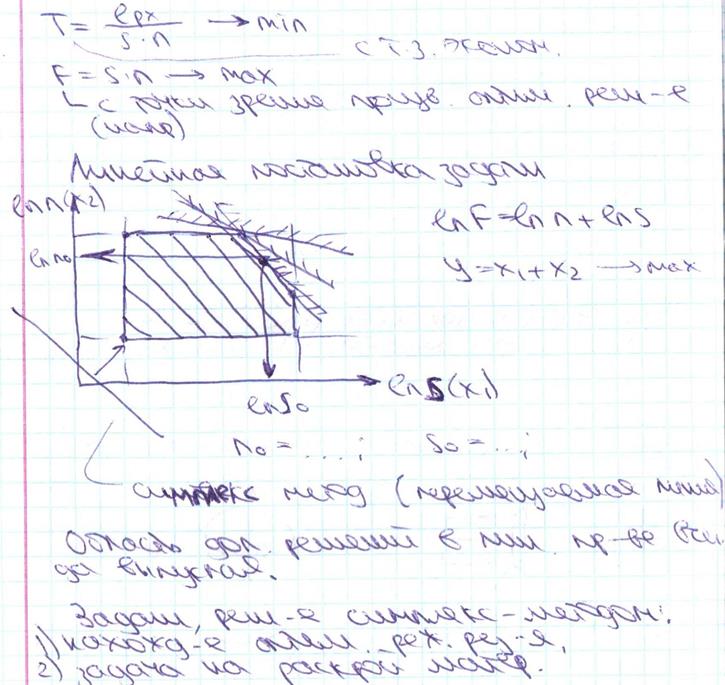 T = ℓрх / s·n → min
с т.з. эконом.
F = s·n → max
с точки зрения произв. оптим. реш-е
Линейная постановка задачи
ln n(x₂)
ln F = ln n + ln s
ln n₀
y = x₁ + x₂ → max
ln S(x₁)
ln S₀
n₀ = ....; s₀ = ...;
симплекс метод (перемещаемая линия)
Область доп. решений в лин. пр-ве
да выпуклая.
Задачи, реш-е симплекс-методом:
1) нахожд-е оптим. реж. рез-я,
2) задача на раскрой матер.